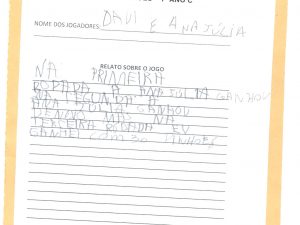 ANO C
NOME DOS JOGADORES: DAVI E ANA JÚLIA
RELATO SOBRE O JOGO
NA PRIMEIRA
RODADA A ANA JÚLIA GANHOU
NA SEGUNDA A
ANA JÚLIA GANHOU
DENOVO MAS NA
TERCEIRA RODADA EU
GANHEI COM 30 PINHÕES